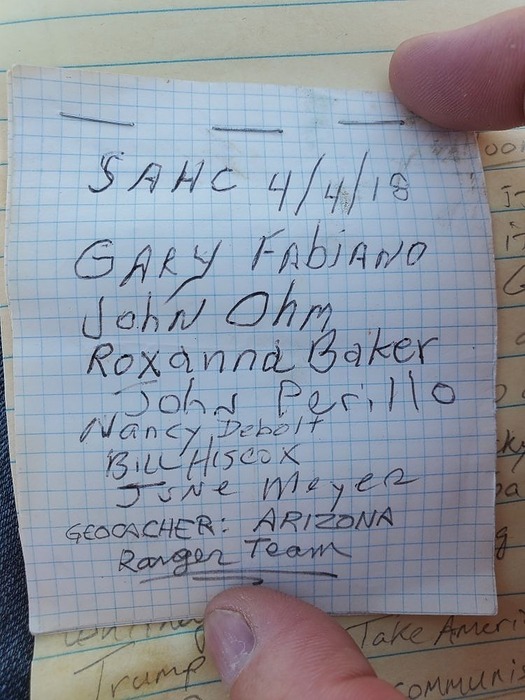 SAHC 4/4/18
GARY FAbiANO
John Ohm
Roxanna Baker
John Perillo
Nancy Debolt
BILL HISCOX
June Meyer
GEOCACHER: ARIZONA
Ranger Team
Take Ameri
Trump
communi